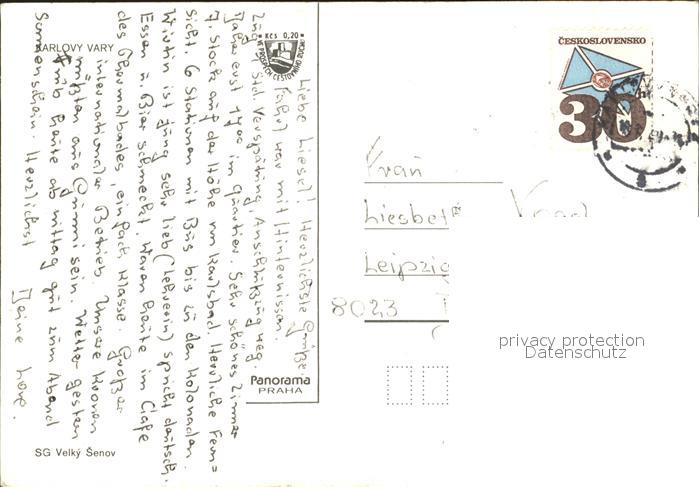 KARLOVY VARY
Kčs 0,20
VE PROSPĚCH CESTOVNÍHO RUCHU
Liebe Liesel! Herzlichste Grüße.
Fahrt war mit Hindernissen.
Zug 1 Std Verspätung, Anschlußzug weg.
Daher erst 1700 im Quartier. Sehr schönes Zimmer
7. Stock auf der Höhe von Karlsbad. Herrliche Fern=
sicht. 6 Stationen mit Bus bis zu den Kolonaden.
Wirtin ist jung sehr lieb (Lehrerin) spricht deutsch.
Essen u. Bier schmeckt. Waren heute im Cafe
des Thermalbades, einfach Klasse. Großer
internationaler Betrieb. Unsere Kronen
müßten aus Gummi sein. Wetter gestern
trüb heute ab mittag gut zum Abend
Sonnenschein. Herzlichst
Deine Lore.
Panorama
PRAHA
SG Velký Šenov
ČESKOSLOVENSKO
30
Frau
Liesbet
Leipzig
8023
privacy protection
Datenschutz